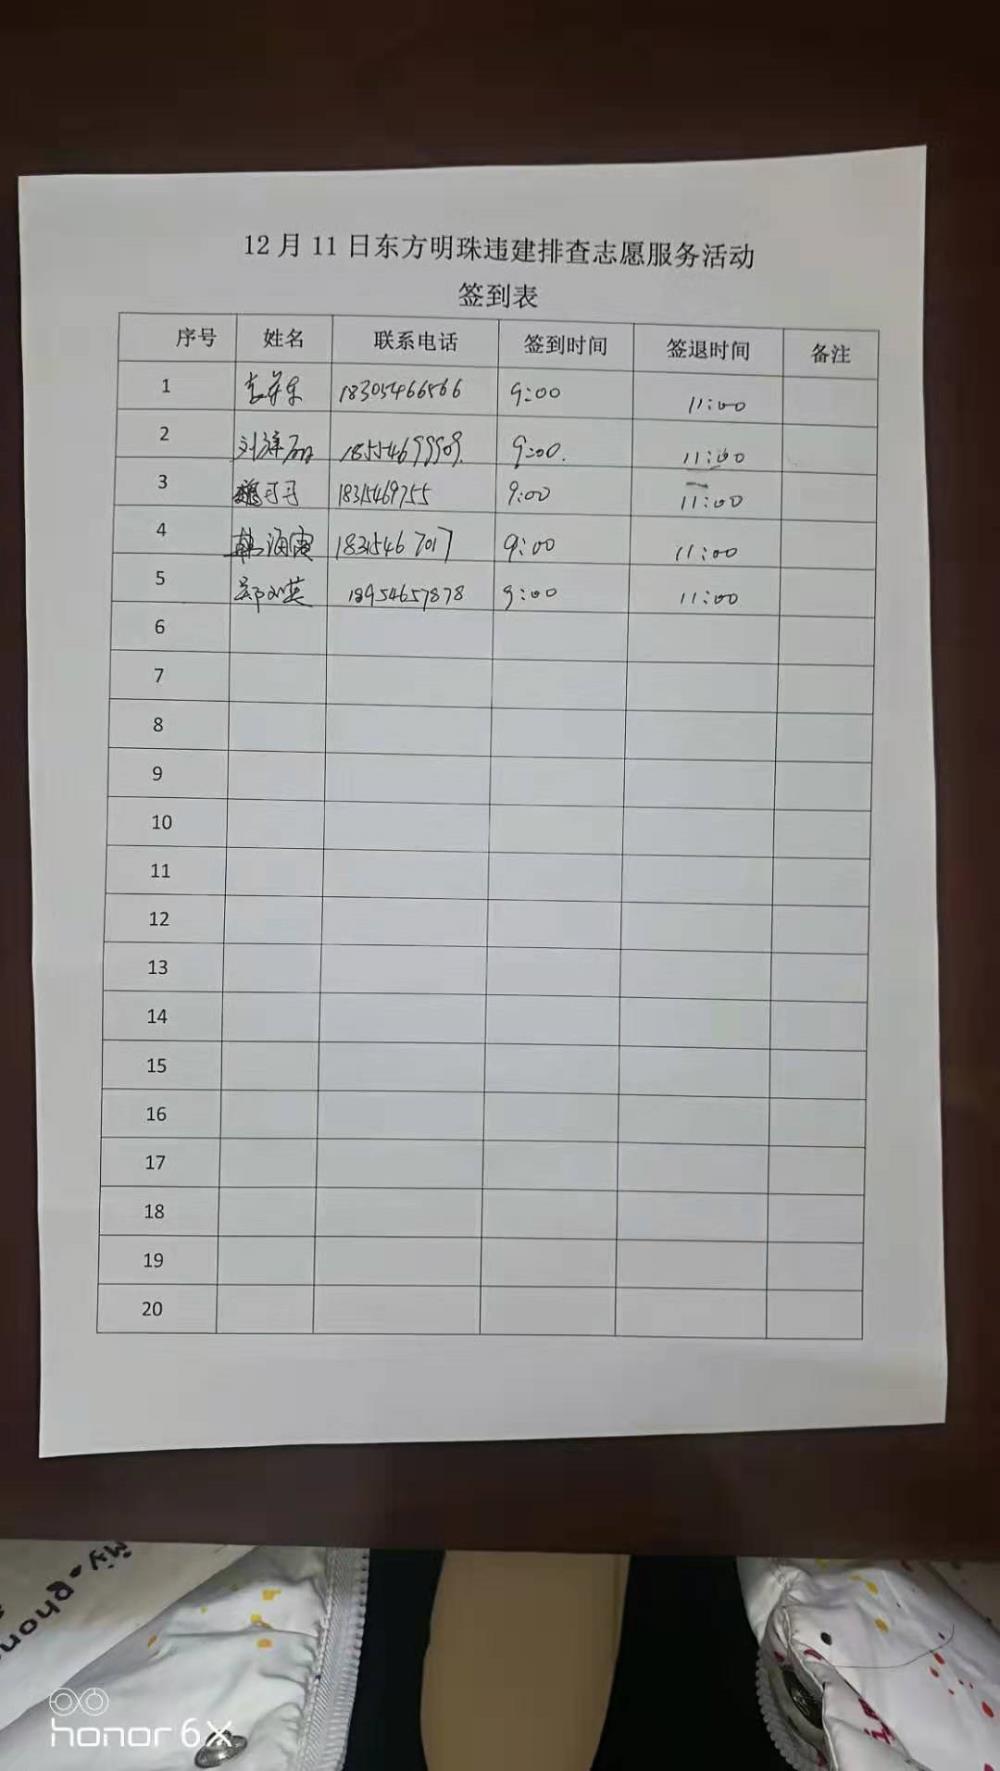 12月11日东方明珠违建排查志愿服务活动
签到表
序号 姓名 联系电话 签到时间 签退时间 备注
1 18305466566 9:00 11:00
2 9:00. 11:00
3 18315469755 9:00 11:00
4 18315467017 9:00 11:00
5 18954657878 9:00 11:00
6
7
8
9
10
11
12
13
14
15
16
17
18
19
20
My Phon
honor 6X